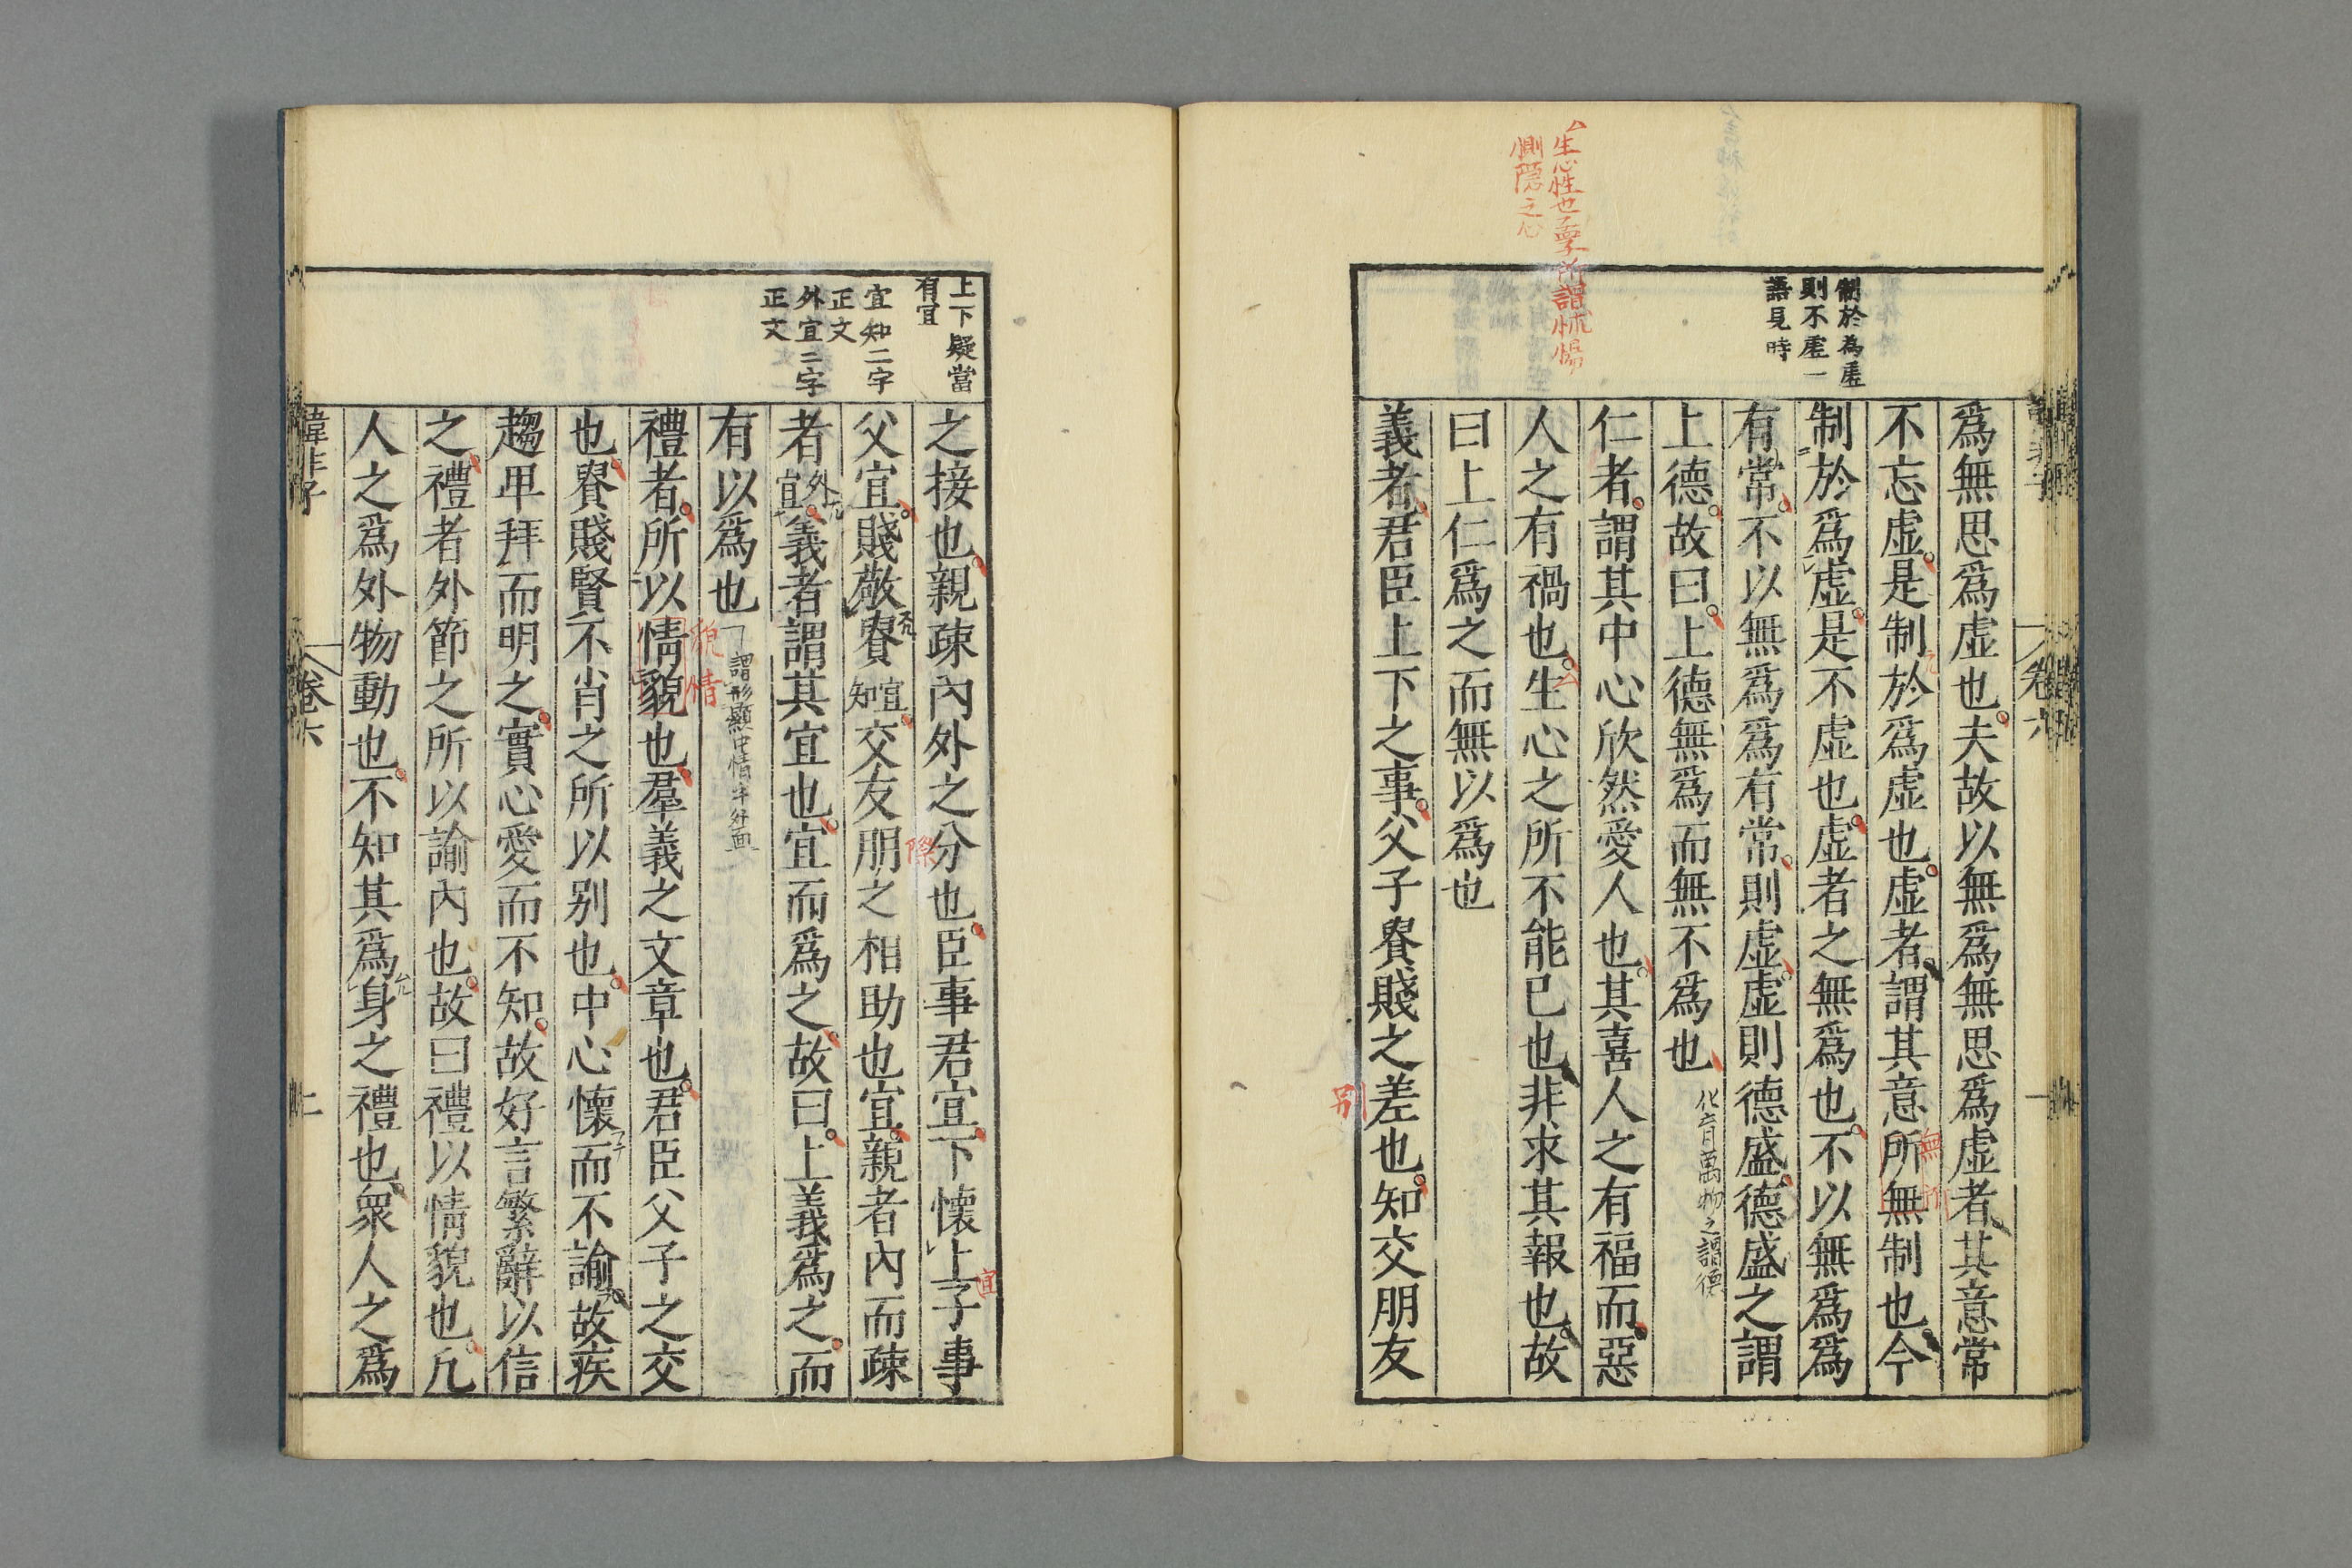 生心性也孟子所謂怵惕
惻隱之心
制於為虛
則不虛一
語見時
卷六
爲無思爲虛也夫故以無爲無思爲虛者其意常
不忘虛是制於爲虛也虛者謂其意所無制也今
無所
制於爲虛是不虛也虛者之無爲也不以無爲爲
有常不以無爲爲有常則虛虛則德盛德盛之謂
上德故曰上德無爲而無不爲也
化育萬物之謂德
仁者謂其中心欣然愛人也其喜人之有福而惡
人之有禍也生心之所不能已也非求其報也故
曰上仁爲之而無以爲也
義者君臣上下之事父子貴賤之差也知交朋友
別
上下疑當
有宜
宜知二字
正文
外宜二字
正文
之接也親疎內外之分也臣事君宜下懷上子事
宜
際
父宜賤敬貴宜知交友朋之相助也宜親者內而疎
者外宜義者謂其宜也宜而爲之故曰上義爲之而
有以爲也
謂形顯中情乎外面
禮者所以情貌也羣義之文章也君臣父子之交
貌情
也貴賤賢不肖之所以别也中心懷而不諭故疾
趨卑拜而明之實心愛而不知故好言繁辭以信
之禮者外節之所以諭內也故曰禮以情貌也凡
人之爲外物動也不知其爲身之禮也衆人之爲
韓非子 卷六 二